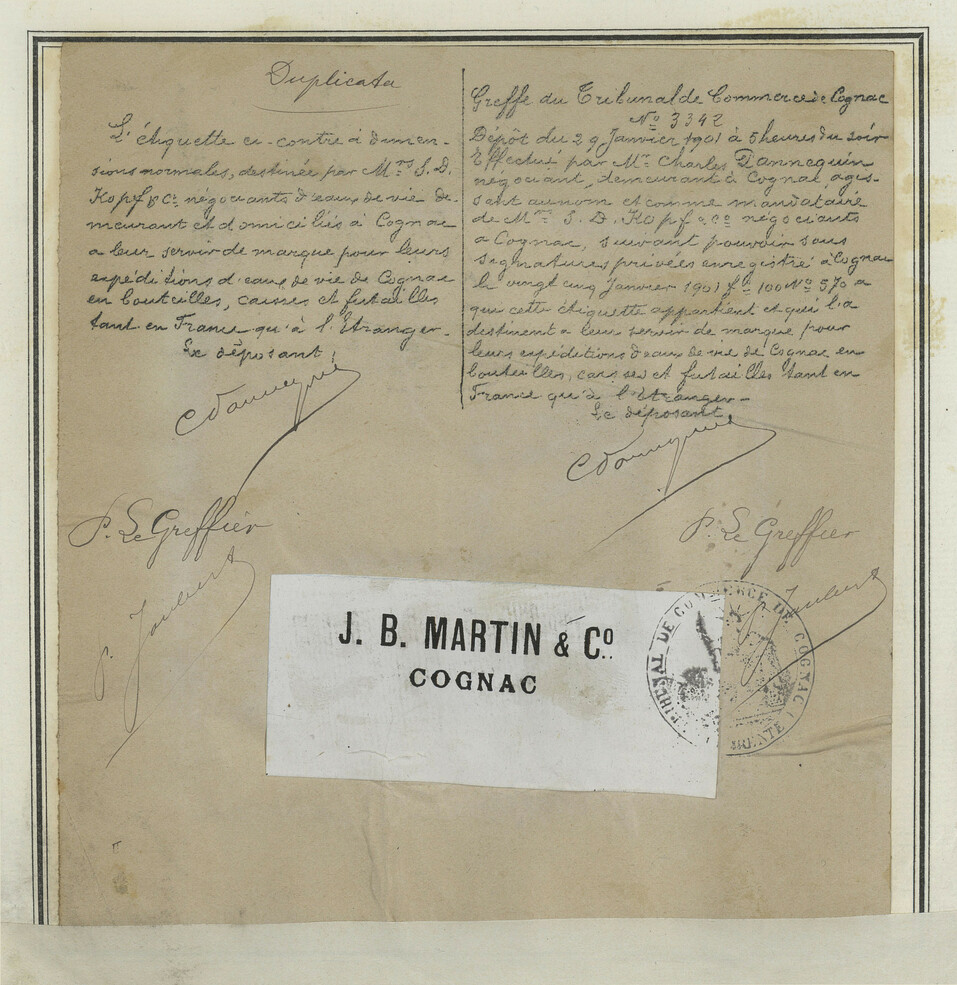 Duplicata
L'étiquette ci-contre à dimen-
sions normales, destinée par Mrs S. D.
Kopf & Co négociants d'eaux de vie de-
meurant et domiciliés à Cognac
a leur servir de marque pour leurs
expéditions d'eaux de vie de Cognac
en bouteilles, caisses et futailles
tant en France qu'à l'Etranger.
Le déposant,
P. Le Greffier
P. Joubert
Greffe du Tribunal de Commerce de Cognac
No 3342
Dépôt du 29 Janvier 1901 à 5 heures du soir
Effectué par Mr Charles Dannequin
négociant, demeurant à Cognac, agis-
sant au nom et comme mandataire
de Mrs S. D. Kopf & Co négociants
a Cognac, suivant pouvoir sous
signatures privées enregistré à Cognac
le vingt cinq Janvier 1901 fo 100 No 570 a
que cette étiquette appartient et qu'il la
destinent a leur servir de marque pour
leurs expéditions d'eaux de vie de Cognac en
bouteilles, caisses et futailles tant en
France qu'à l'étranger-
Le déposant,
P. Le Greffier
Joubert
J. B. MARTIN & Co.
COGNAC
TRIBUNAL DE COMMERCE DE COGNAC